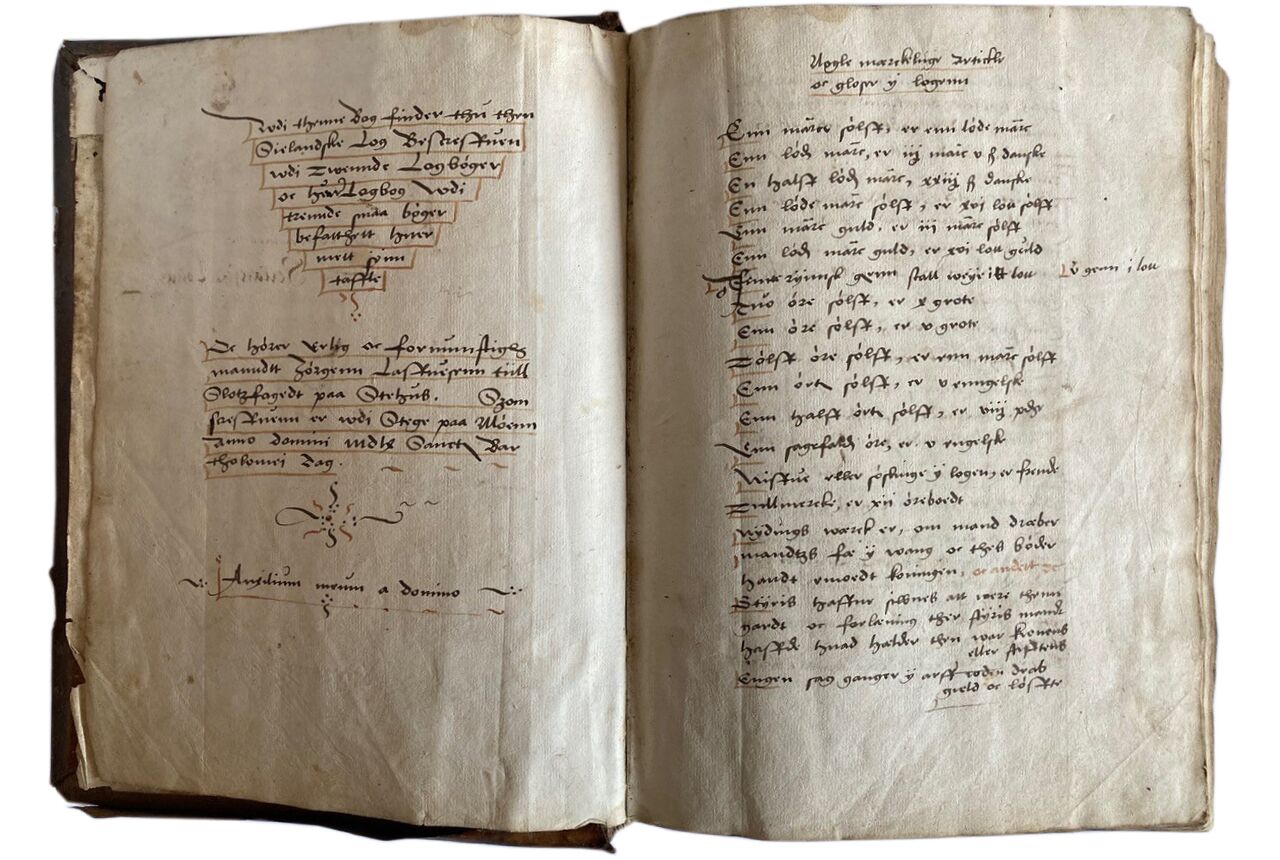 Wdi thenne Bog finder thu then
Sielandske Log Bescreffuen
wdi Twennde Logbøger
oc huer Logbog Wdi
trennde smaa bøger
befatthett huer
mett sinn
taffle
De hører Erlig oc fornumstighs
manndt Jørgenn Lasffuesenn till
Slotzfagedt paa Stehus. Szom
screffuenn er wdi Stege paa Møenn
Anno domini Mdlx Sancti Bar
tholomei dag.
Auxilium meum a domino
Nogle mærckelige Artickle
oc gloser y logenn
Enn marck sølff, er enn løde marc
Enn løde marc, er iij marc v ß danske
En halff løde marc, xxiiij ß danske
Enn løde marc sølff, er xvi lou sølff
Enn marc guld, er iij marc sølff
Enn løde marc guld, er xvi lou guld
rijnnsk skall weye lou
v i lou
Tuo øre sølff, er x grote
Enn øre sølff, er v grote
Tolff øre sølff, er enn marc sølff
Enn ørte sølff, er v enngelske
Enn halff ørte sølff, er viij
Enn sagefald øre, er v engelske
Niffue eller søskinge y logen, er frende
Tullmercke, er xij øreboedt
Nydings wærck er, om mand dræber
mandtzs fæ y wang oc thes bøder
handt emoedt koningen, oc andett
Styris haffne siwnes att were thenn
gardt oc forlæning ther styris mandt
haffde huad hælder then war kronens
eller stichtens
Engen sag ganger y arff woden drab
gield oc løffte